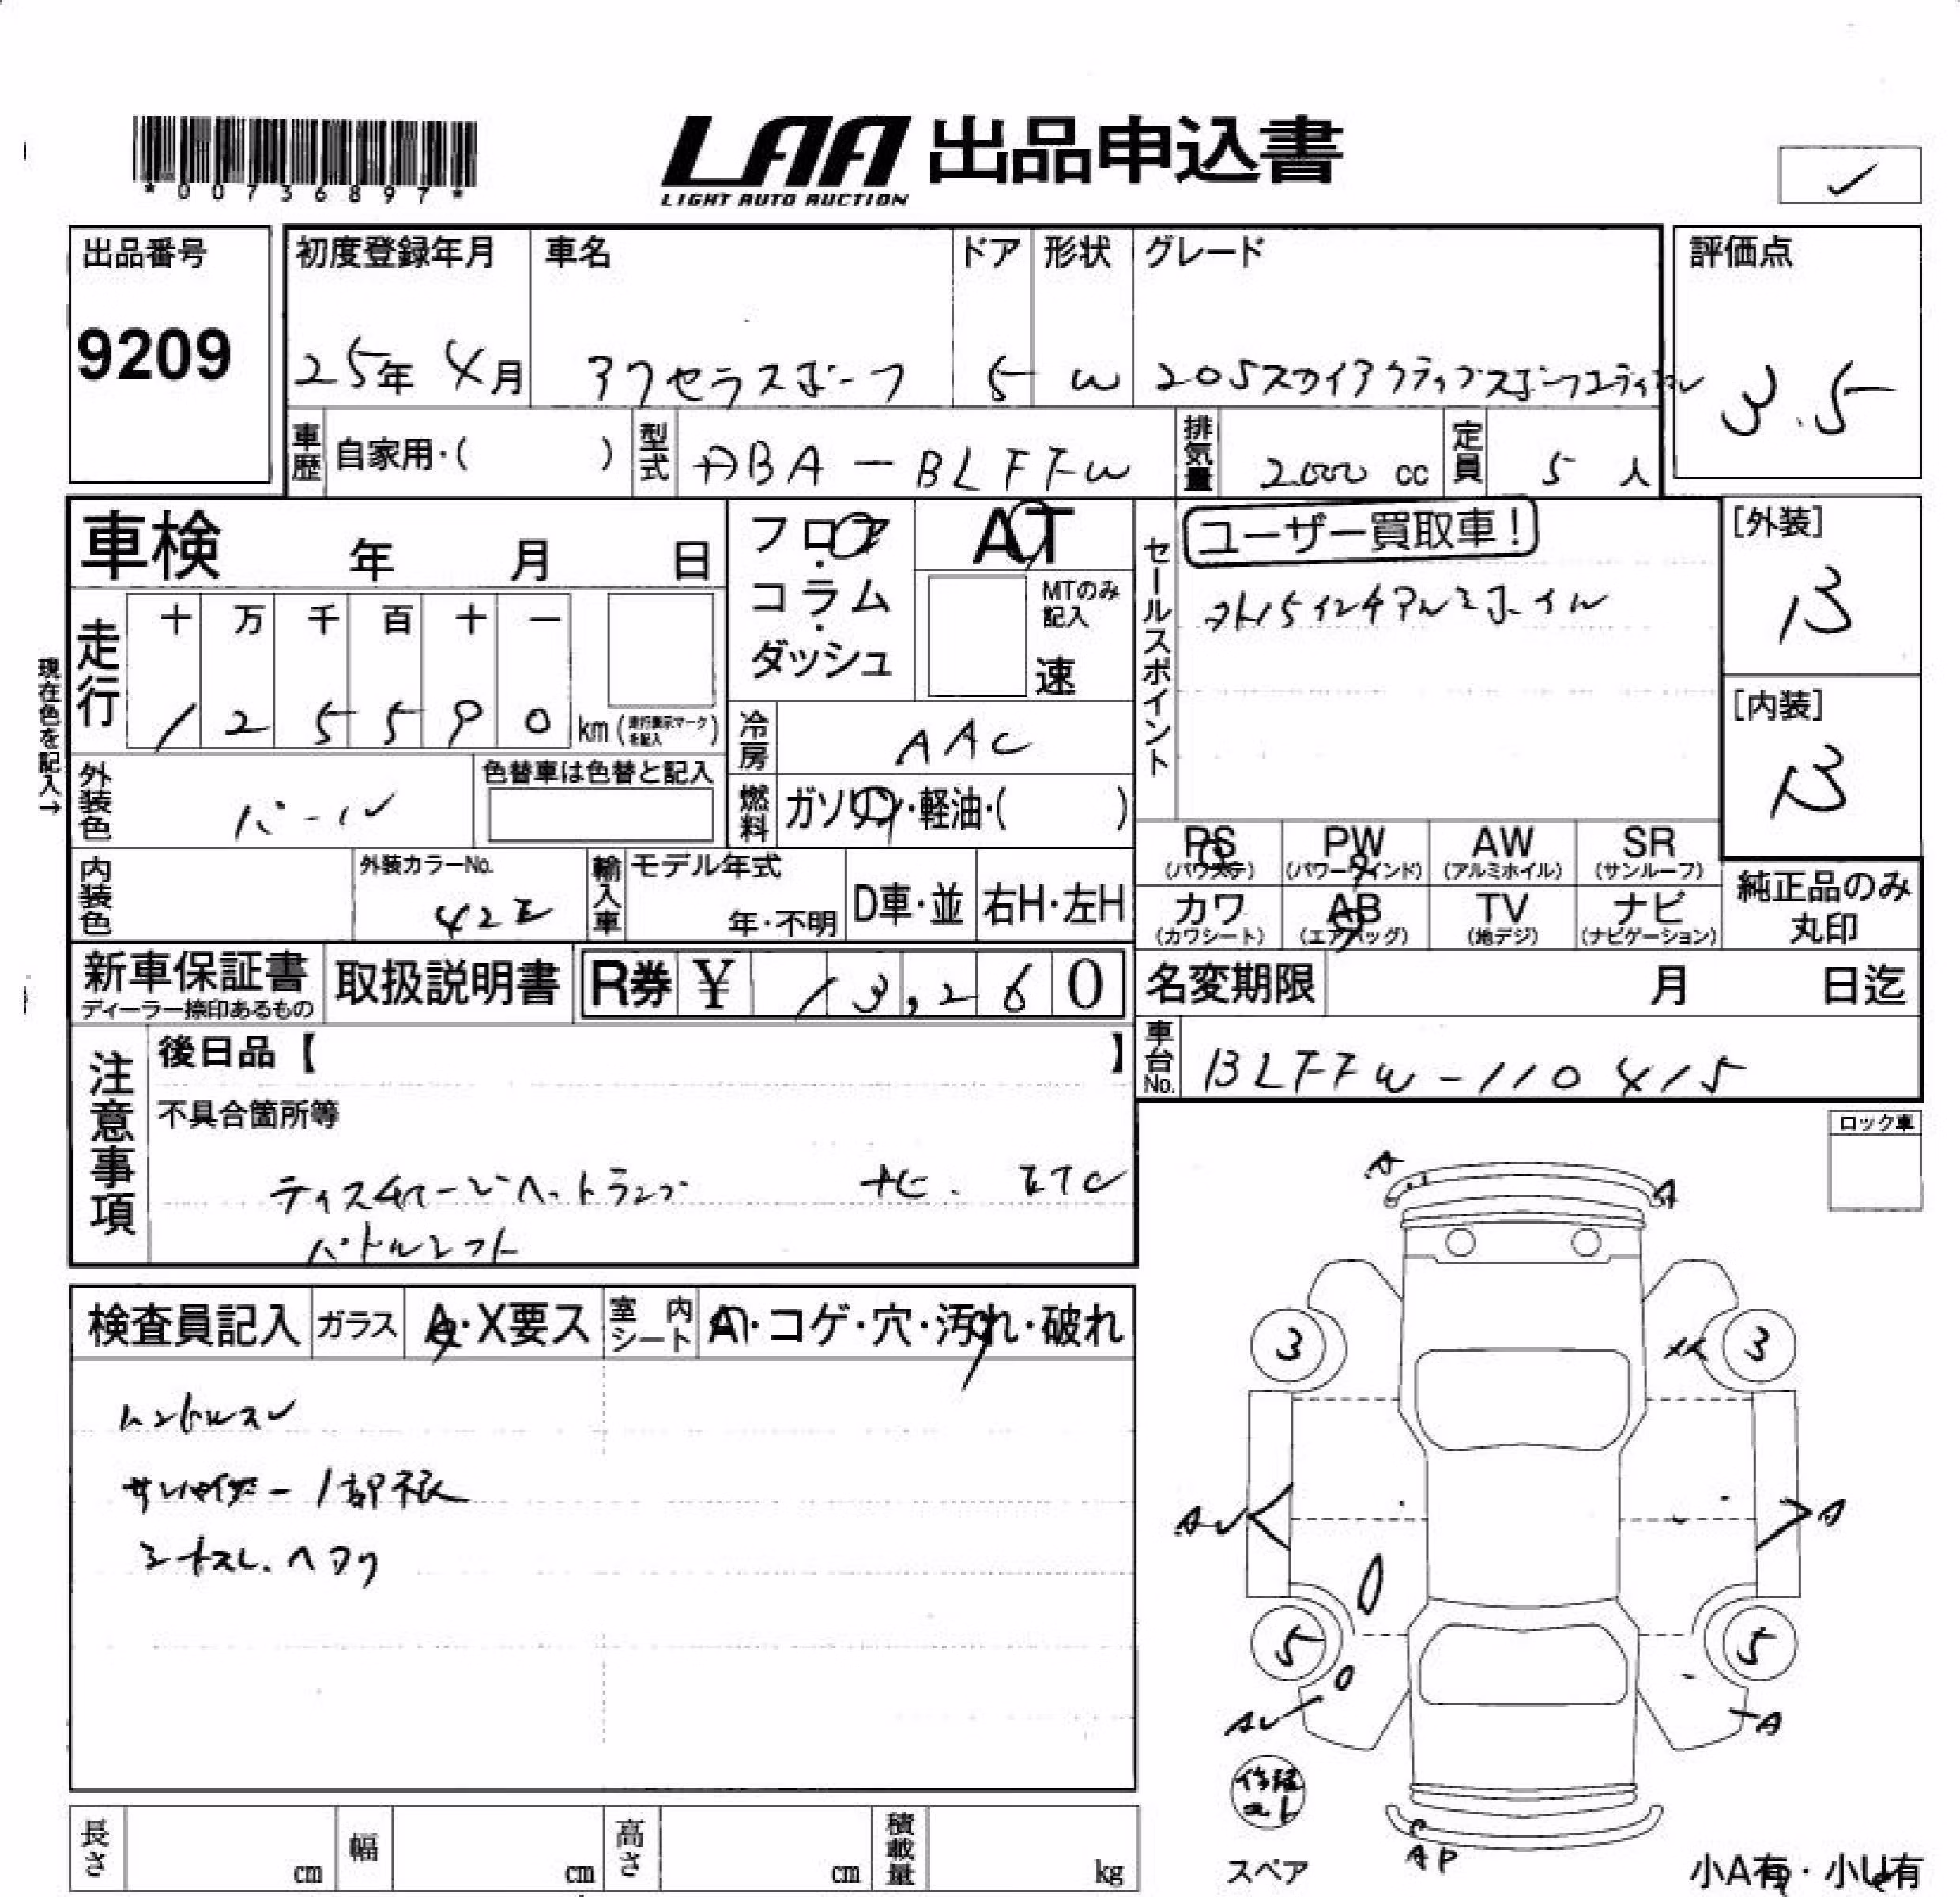 *00736897*
LAA 出品申込書
LIGHT AUTO AUCTION
✓
出品番号
9209
初度登録年月
25年 4月
車名
アクセラスポーツ
ドア
5
形状
W
グレード
20Sスカイアクティブスポーツエディション
評価点
3.5
車歴 自家用・( )
型式 DBA-BLFFW
排気量 2000 cc
定員 5 人
車検 年 月 日
フロア・コラム・ダッシュ
AT
MTのみ記入
速
セールスポイント
ユーザー買取車!
外15インチアルミホイル
[外装]
B
[内装]
B
現在色を記入→
走行
十 万 千 百 十 一
1 2 5 5 9 0 km (走行表示マークを記入)
冷房 AAC
外装色 パール
色替車は色替と記入
燃料 ガソリン・軽油・( )
PS (パワステ)
PW (パワーウインド)
AW (アルミホイル)
SR (サンルーフ)
カワ (カワシート)
AB (エアバッグ)
TV (地デジ)
ナビ (ナビゲーション)
純正品のみ丸印
内装色
外装カラーNo.
輸入車
モデル年式
年・不明
D車・並
右H・左H
新車保証書
ディーラー捺印あるもの
取扱説明書
R券 ¥ 13,260
名変期限 月 日迄
車台No. BLFFW-110415
注意事項
後日品【 】
不具合箇所等
ディスチャージヘットランプ ナビ. ETC
パドルシフト
ロック車
検査員記入
ガラス A・X要ス
室内シート
コゲ・穴・汚れ・破れ
ハンドルスレ
1部
A
A
3
3
A
5
5
A
AP
スペア
小A有・小U有
長さ cm
幅 cm
高さ cm
積載量 kg